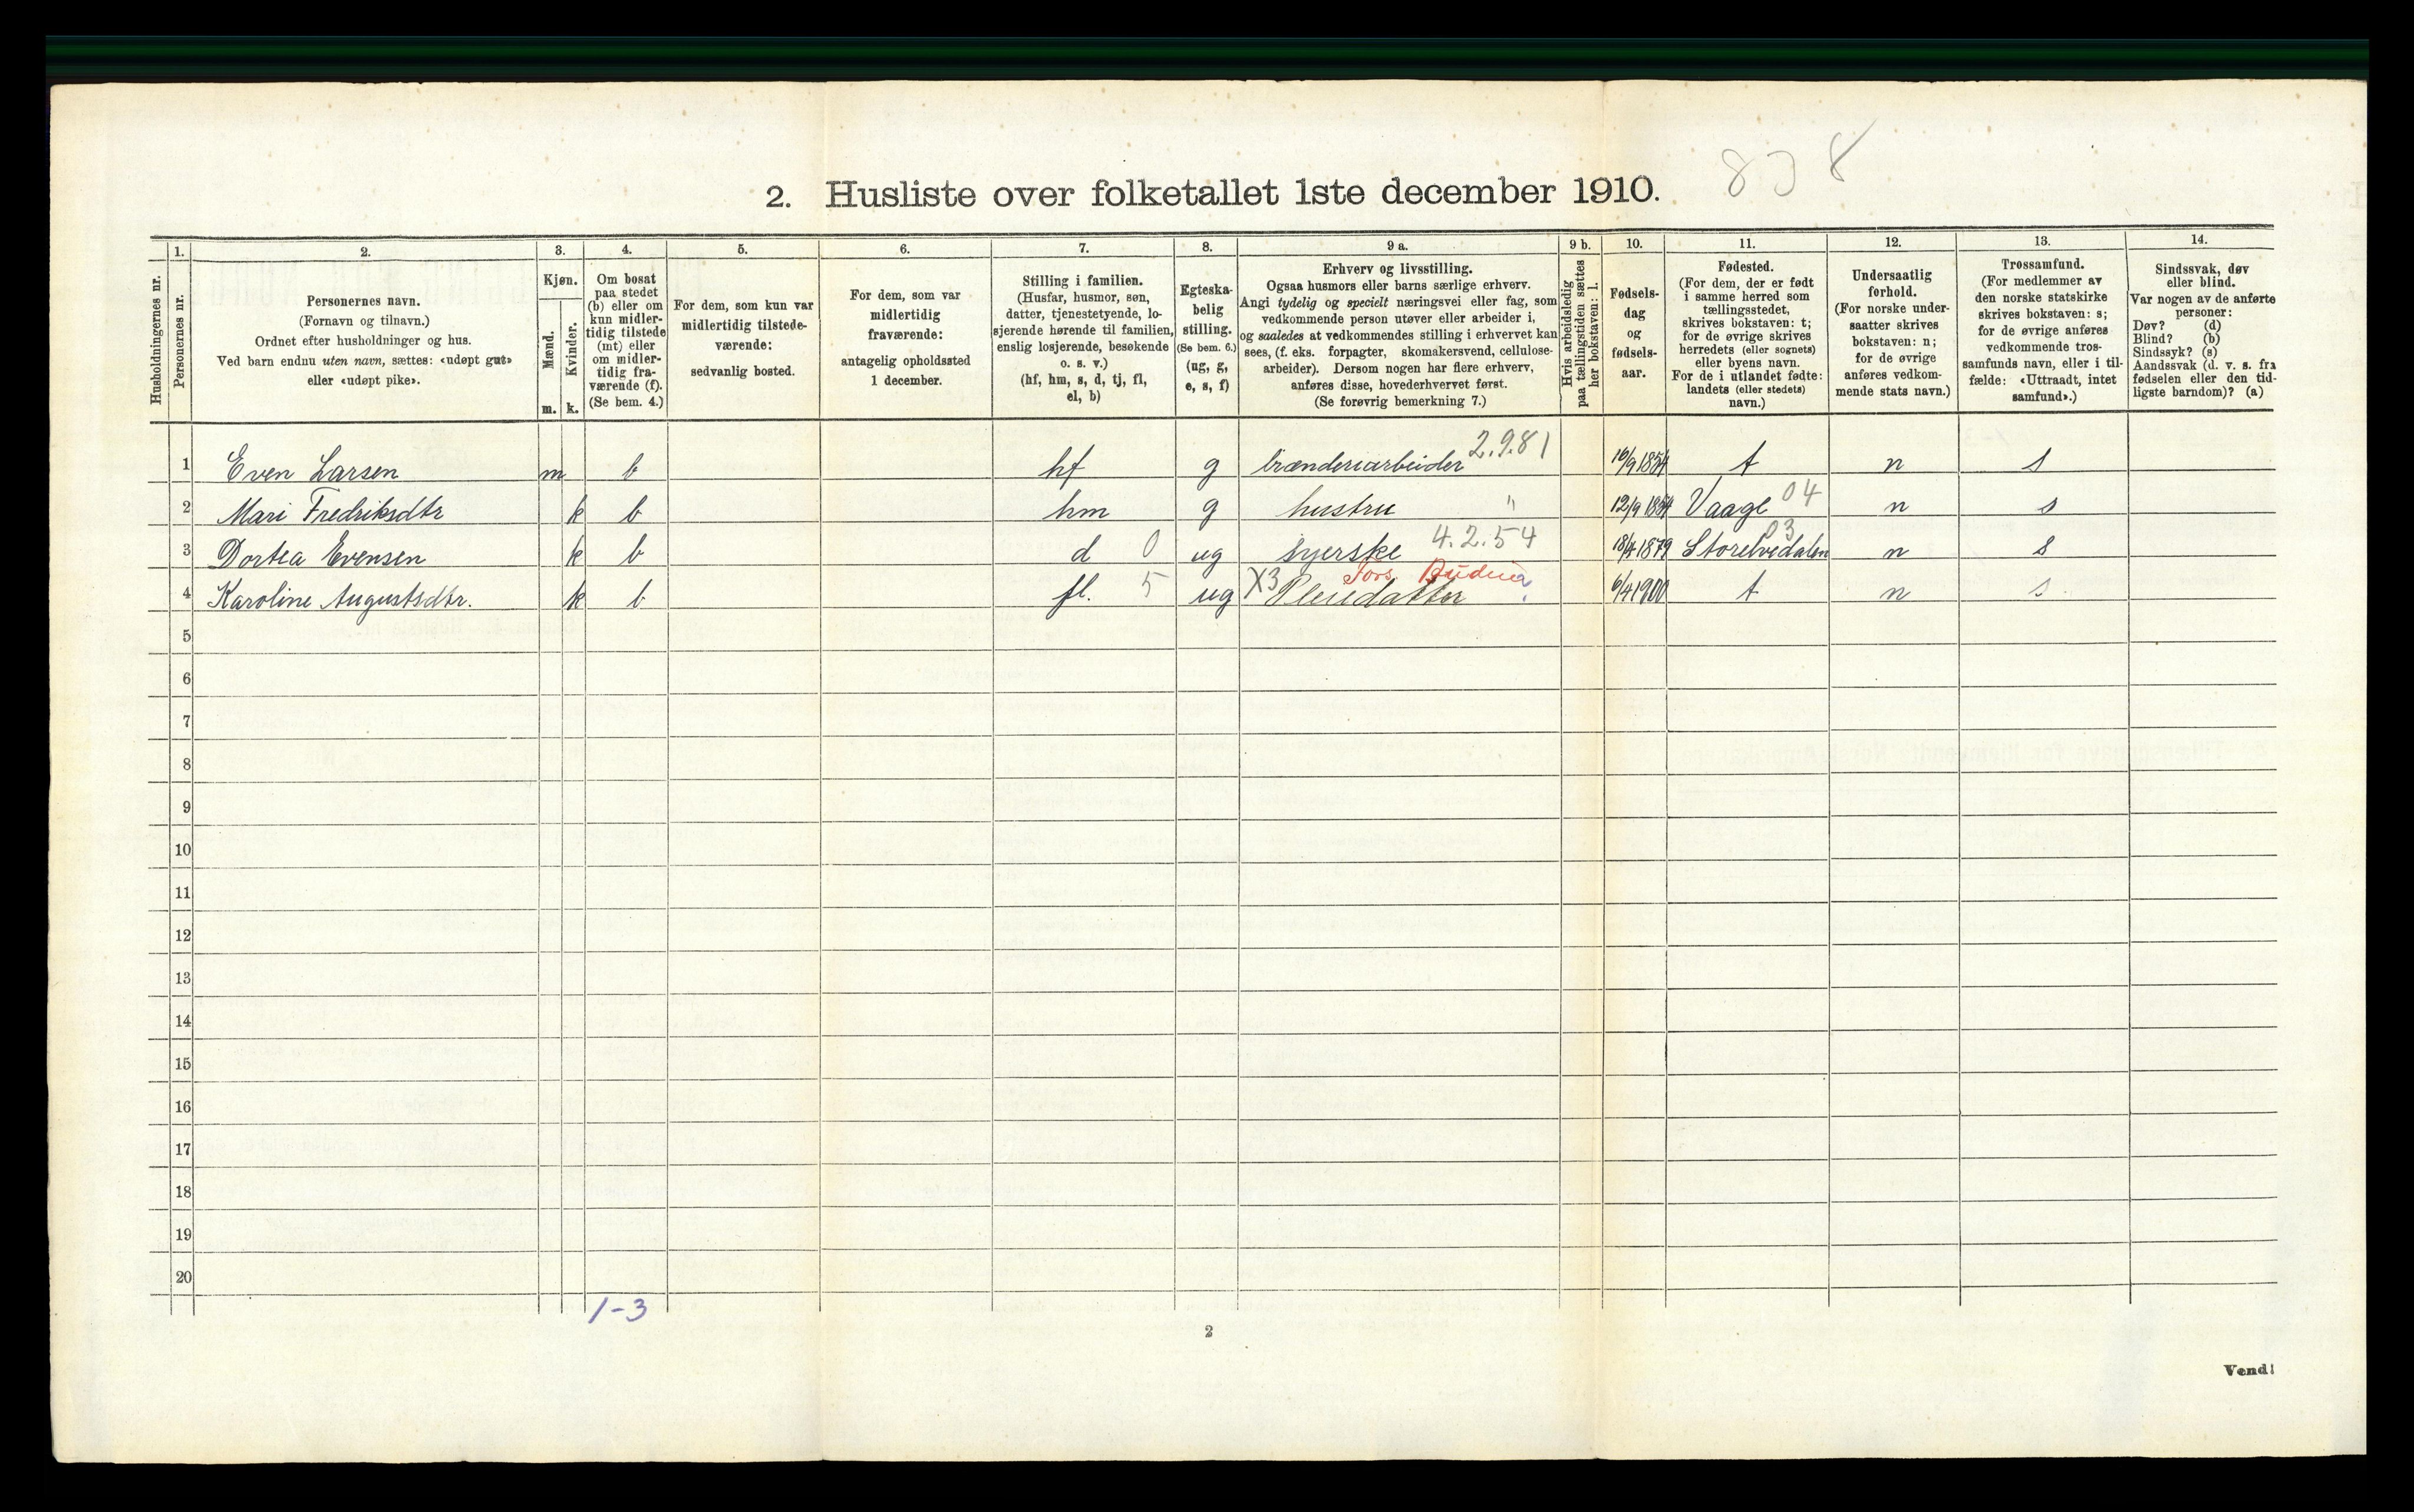 838
2. Husliste over folketallet 1ste december 1910.
Husholdningernes nr.
1.
Personernes nr.
2.
Personernes navn.
(Fornavn og tilnavn.)
Ordnet efter husholdninger og hus.
Ved barn endnu uten navn, sættes: «udøpt gut»
eller «udøpt pike».
3.
Kjøn.
Mænd.
Kvinder.
m. k.
4.
Om bosat
paa stedet
(b) eller om
kun midler-
tidig tilstede
(mt) eller
om midler-
tidig fra-
værende (f).
(Se bem. 4.)
5.
For dem, som kun var
midlertidig tilstede-
værende:
sedvanlig bosted.
6.
For dem, som var
midlertidig
fraværende:
antagelig opholdssted
1 december.
7.
Stilling i familien.
(Husfar, husmor, søn,
datter, tjenestetyende, lo-
sjerende hørende til familien,
enslig losjerende, besøkende
o. s. v.)
(hf, hm, s, d, tj, fl,
el, b)
8.
Egteska-
belig
stilling.
(Se bem. 6.)
(ug, g,
e, s, f)
9 a.
Erhverv og livsstilling.
Ogsaa husmors eller barns særlige erhverv.
Angi tydelig og specielt næringsvei eller fag, som
vedkommende person utøver eller arbeider i,
og saaledes at vedkommendes stilling i erhvervet kan
sees, (f. eks. forpagter, skomakersvend, cellulose-
arbeider). Dersom nogen har flere erhverv,
anføres disse, hovederhvervet først.
(Se forøvrig bemerkning 7.)
9 b.
Hvis arbeidsledig
paa tællingstiden sættes
her bokstaven: l.
10.
Fødsels-
dag
og
fødsels-
aar.
11.
Fødested.
(For dem, der er født
i samme herred som
tællingsstedet,
skrives bokstaven: t;
for de øvrige skrives
herredets (eller sognets)
eller byens navn.
For de i utlandet fødte:
landets (eller stedets)
navn.)
12.
Undersaatlig
forhold.
(For norske under-
saatter skrives
bokstaven: n;
for de øvrige
anføres vedkom-
mende stats navn.)
13.
Trossamfund.
(For medlemmer av
den norske statskirke
skrives bokstaven: s;
for de øvrige anføres
vedkommende tros-
samfunds navn, eller i til-
fælde: «Uttraadt, intet
samfund».)
14.
Sindssvak, døv
eller blind.
Var nogen av de anførte
personer:
Døv? (d)
Blind? (b)
Sindssyk? (s)
Aandssvak (d. v. s. fra
fødselen eller den tid-
ligste barndom)? (a)
1 Even Larsen m b hf g brænderiarbeider 2.9.81 1854 t n s
2 Mari Fredriksdtr k b hm g hustru " 12/9 1854 Vaage 04 n s
3 Dortea Evensen k b d 0 ug syerske 4.2.54 18/4 1879 Storelvedalen 03 n s
4 Karoline Augustsdtr. k b fl. 5 ug X3 Pleiedatter 6/4 1900 t n s
5
6
7
8
9
10
11
12
13
14
15
16
17
18
19
20
1-3
2
Vend!